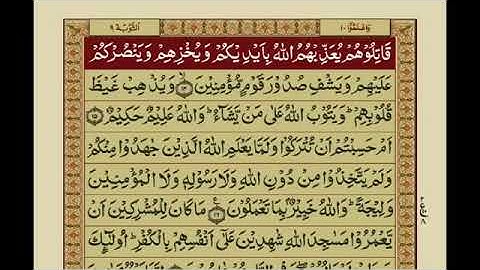 وَاعْلَمُوْٓا ١٠
اَلتَّوْبَة ٩
قَاتِلُوْهُمْ يُعَذِّبْهُمُ اللّٰهُ بِاَيْدِيْكُمْ وَيُخْزِهِمْ وَيَنْصُرْكُمْ
عَلَيْهِمْ وَيَشْفِ صُدُوْرَ قَوْمٍ مُّؤْمِنِيْنَ ﴿١٤﴾ وَيُذْهِبْ غَيْظَ
قُلُوْبِهِمْ ؕ وَيَتُوْبُ اللّٰهُ عَلٰى مَنْ يَّشَآءُ ؕ وَاللّٰهُ عَلِيْمٌ حَكِيْمٌ ﴿١٥﴾
اَمْ حَسِبْتُمْ اَنْ تُتْرَكُوْا وَلَمَّا يَعْلَمِ اللّٰهُ الَّذِيْنَ جٰهَدُوْا مِنْكُمْ
وَلَمْ يَتَّخِذُوْا مِنْ دُوْنِ اللّٰهِ وَلَا رَسُوْلِهٖ وَلَا الْمُؤْمِنِيْنَ
وَلِيْجَةً ؕ وَاللّٰهُ خَبِيْرٌۢ بِمَا تَعْمَلُوْنَ ﴿١٦﴾ مَا كَانَ لِلْمُشْرِكِيْنَ اَنْ
يَّعْمُرُوْا مَسٰجِدَ اللّٰهِ شٰهِدِيْنَ عَلٰٓى اَنْفُسِهِمْ بِالْكُفْرِ ؕ اُولٰٓئِكَ